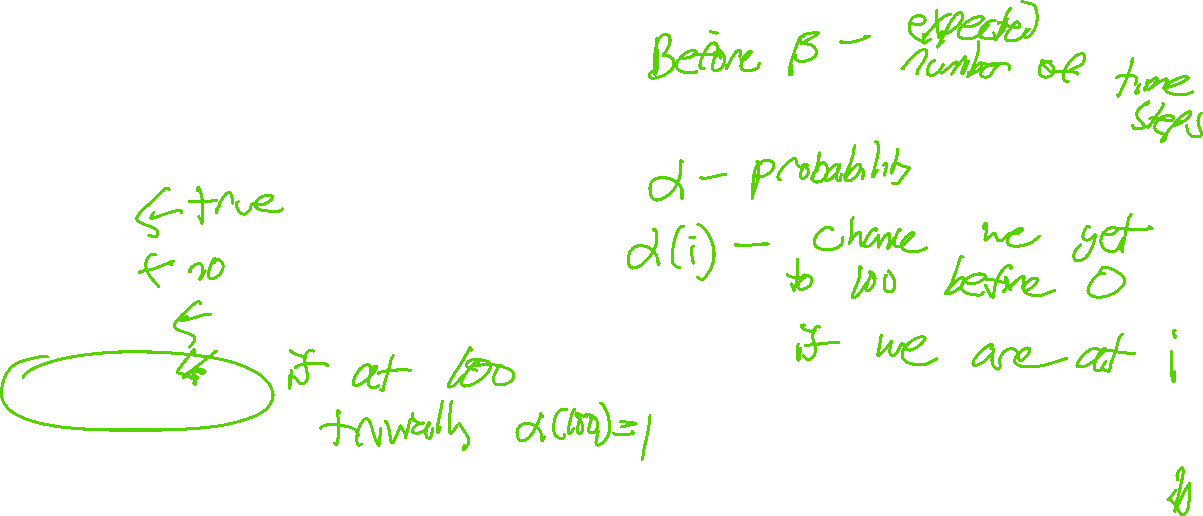 Before β – expected number of time steps
α – probability
α(i) – chance we get to 100 before 0
if we are at i
← true
← no
if at 100
trivially α(100)=1